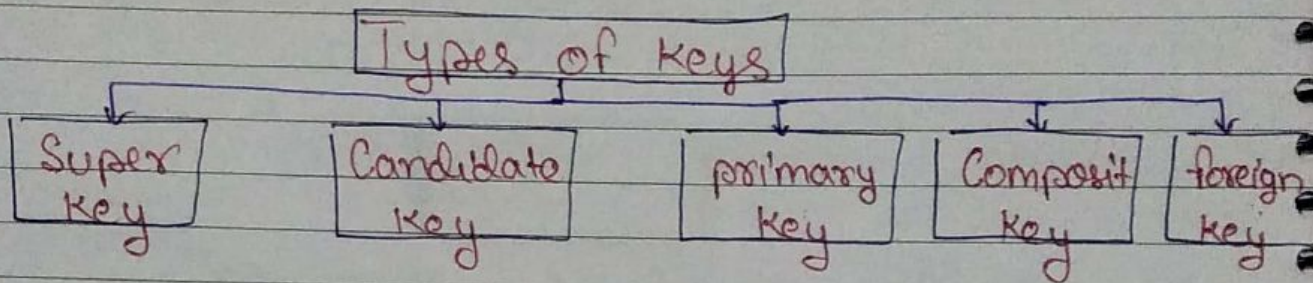 Types of keys
Super key
Candidate key
primary key
Composit key
foreign key